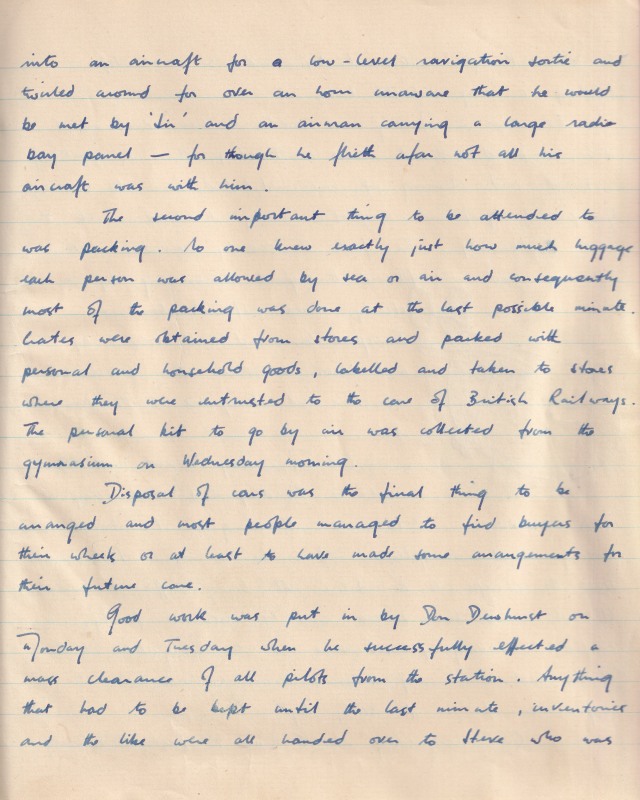 into an aircraft for a low-level navigation sortie and
twirled around for over an hour unaware that he would
be met by 'Sir' and an airman carrying a large radio
bay panel — for though he flieth afar not all his
aircraft was with him.
The second important thing to be attended to
was packing. No one knew exactly just how much luggage
each person was allowed by sea or air and consequently
most of the packing was done at the last possible minute.
Crates were obtained from stores and packed with
personal and household goods, labelled and taken to stores
where they were entrusted to the care of British Railways.
The personal kit to go by air was collected from the
gymnasium on Wednesday morning.
Disposal of cars was the final thing to be
arranged and most people managed to find buyers for
their wheels or at least to have made some arrangements for
their future care.
Good work was put in by Don Dewhurst on
Monday and Tuesday when he successfully effected a
mass clearance of all pilots from the station. Anything
that had to be kept until the last minute, inventories
and the like were all handed over to Steve who was